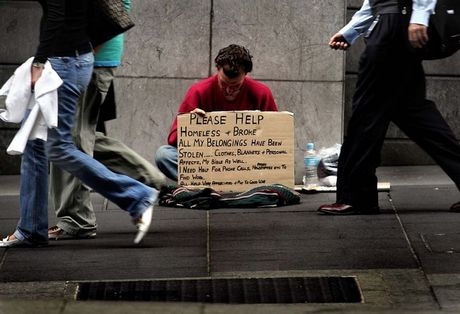 Please Help
Homeless + Broke
All My Belongings Have Been
Stolen..... Clothes, Blankets + Personal
Effects, My Bible As Well.
I Need Help For Phone Calls,